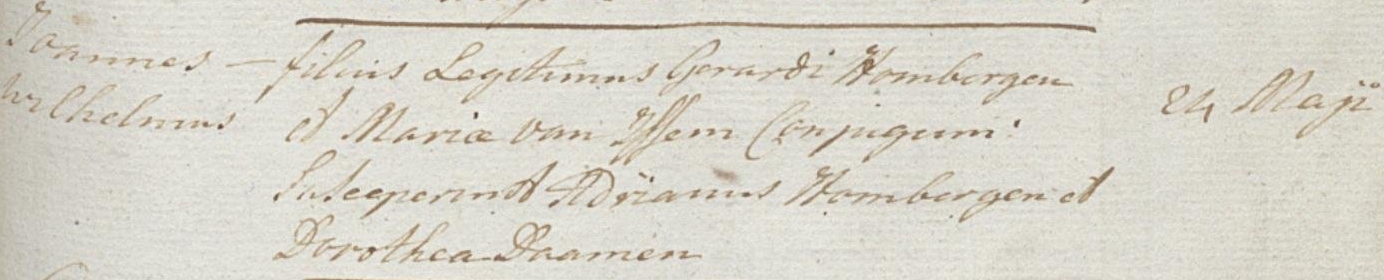 Joannes — filius Legitimus Gerardi Hombergen
Wilhelmus
et Mariæ van Yssem Conjugum:
Susceperunt Adrianus Hombergen et
Dorothea Daamen
24 Maji